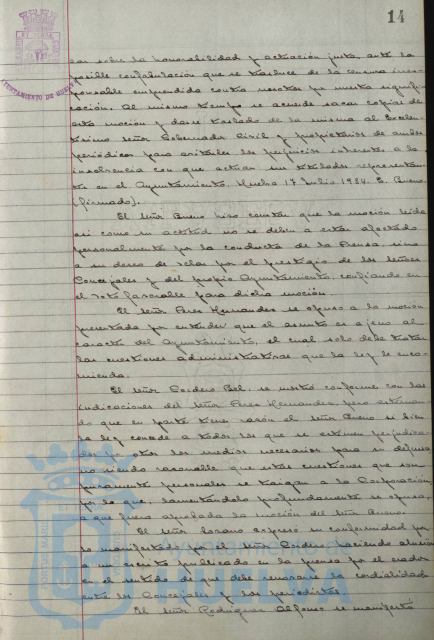 14
AYUNTAMIENTO DE HUELVA
sar sobre la honorabilidad y actuación justa, ante la
posible confabulación que se trasluce de la censura irres-
ponsable emprendida contra nosotros por nuestra signifi-
cación. Al mismo tiempo se acuerde sacar copias de
esta moción y darse traslado de la misma al Excelen-
tísimo Señor Gobernador Civil y propietarios de ambos
periódicos para evitarles los perjuicios inherentes a la
insolvencia con que actúan sus titulados representan-
tes en el Ayuntamiento. Huelva 17 Julio 1934. E. Bueno
(firmado).
El Señor Bueno hizo constar que la moción leida
asi como su actitud no se deben a estar afectado
personalmente por la conducta de la Prensa, sino
a su deseo de velar por el prestigio de los Señores
Concejales y del propio Ayuntamiento, confiando en
el voto favorable para dicha moción.
El Señor Peres Hernandez se opuso a la moción
presentada por entender que el asunto es ajeno al
caracter del Ayuntamiento, el cual solo debe tratar
las cuestiones administrativas que la ley le enco-
mienda.
El Señor Cordero Bel, se mostró conforme con las
indicaciones del Señor Peres Hernandez, pero estiman-
do que en parte tiene razón el Señor Bueno si bien
la ley concede a todos los que se estimen perjudica-
dos por otros los medios necesarios para su defensa
no siendo razonable que estas cuestiones que son
puramente personales se traigan a la Corporación
por lo que, lamentándolo profundamente se oponía
a que fuera aprobada la moción del Señor Bueno.
El Señor Lozano expresó su conformidad por
lo manifestado por el Señor Cordero haciendo alusión
a un escrito publicado en la prensa por el orador
en el sentido de que debe renovarse la cordialidad
entre los Concejales y los periodistas.
El Señor Rodriguez Alfonso se manifestó
Ayuntamiento de
HUELVA